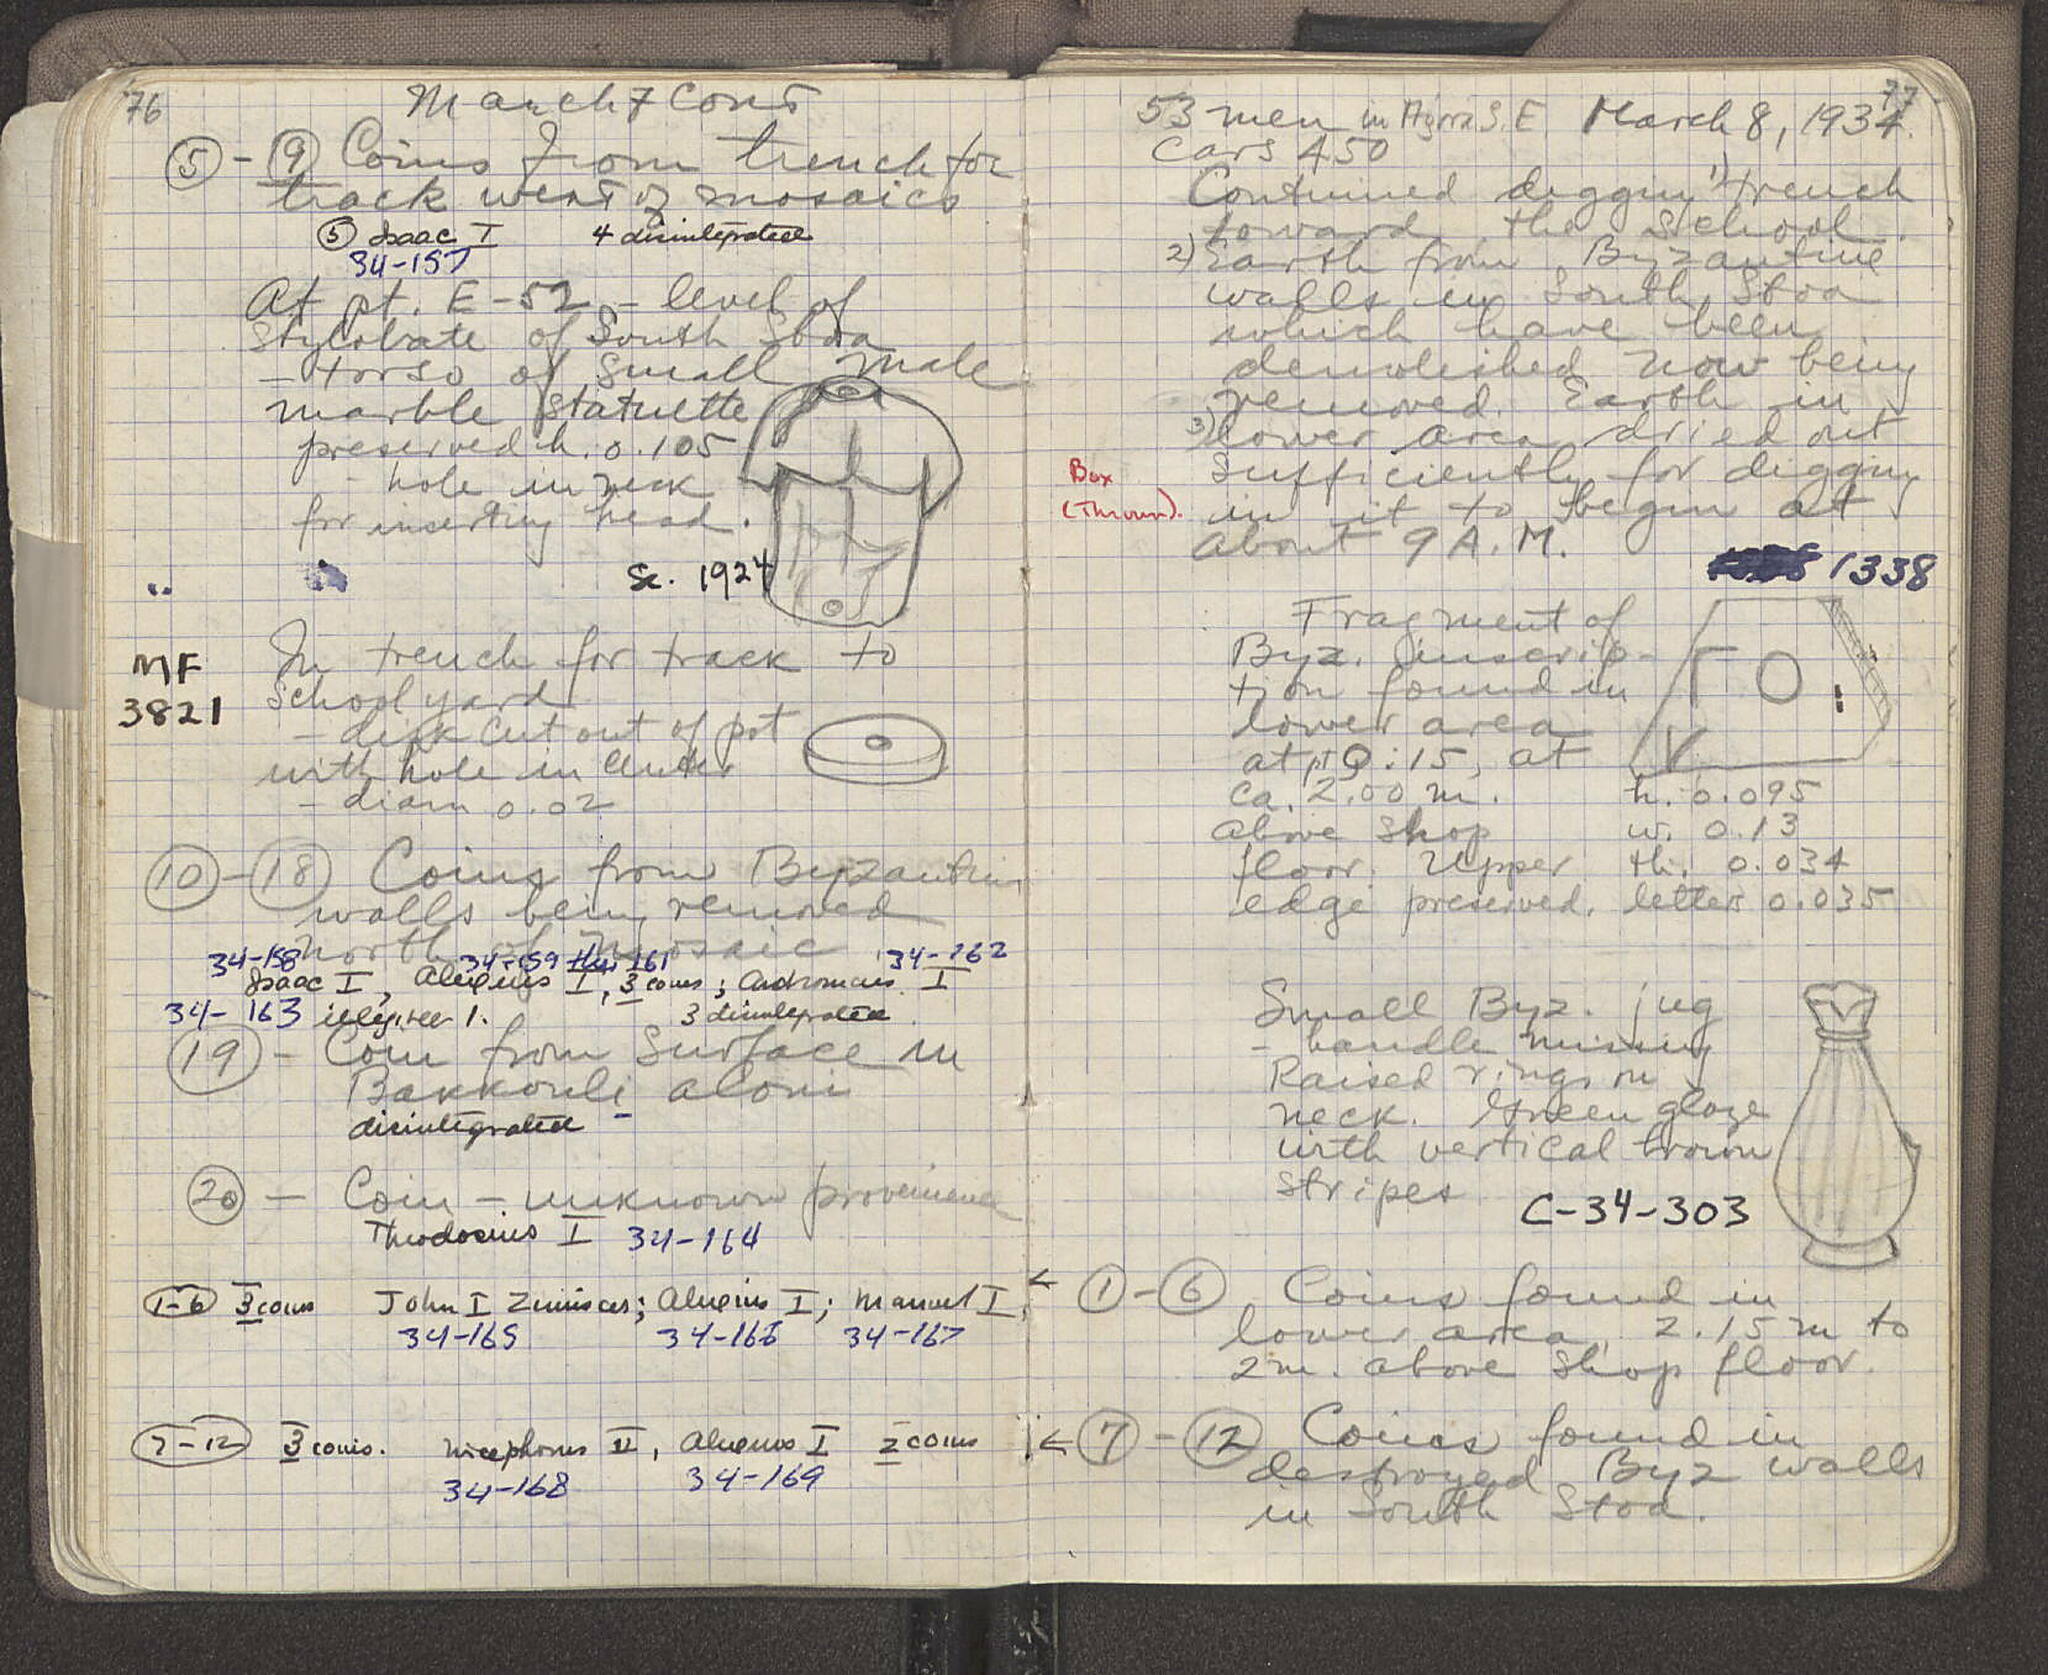 76
March 7 Cont
⑤ - ⑨ Coins from trench for
track west of mosaics
⑤ Isaac I 4 disintegrated
34-157
At pt. E-52 - level of
stylobate of South Stoa
- torso of small male
marble statuette
preserved h. 0.105
- hole in neck
for inserting head.
Sc. 1924
MF
3821
In trench for track to
School yard
- disk cut out of pot
with hole in center
- diam 0.02
⑩ - ⑱ Coins from Byzantine
walls being removed
north of mosaic
34-158 34-159 thru 161 34-162
Isaac I, Alexius I, 3 coins; Andronicus I
34-163 illegible 1. 3 disintegrated.
⑲ - Coin from surface in
Bakkouli aloni
disintegrated -
⑳ - Coin - unknown provenience
Theodosius I 34-164
1-6 3 coins John I Zimisces; Alexius I; Manuel I.
34-165 34-166 34-167
7-12 3 coins. Nicephorus II, Alexius I 2 coins
34-168 34-169
77
53 men in Agora S.E. March 8, 1934.
Cars 450
Continued digging 1) trench
toward the School.
2) Earth from Byzantine
walls in South Stoa
which have been
demolished now being
removed. Earth in
3) lower area dried out
sufficiently for digging
in it to begin at
about 9 A.M.
Box
(Thrown).
1338
Fragment of
Byz. inscrip-
tion found in
lower area
at pt Q:15, at
ca. 2.00 m.
above shop
floor. Upper
edge preserved.
Γ Ο
V
h. 0.095
w. 0.13
th. 0.034
letter 0.035
Small Byz. jug
- handle missing
Raised rings on
neck. Green glaze
with vertical brown
stripes
C-34-303
< ① - ⑥ Coins found in
lower area, 2.15 m to
2 m. above shop floor.
< ⑦ - ⑫ Coins found in
destroyed Byz walls
in South Stoa.